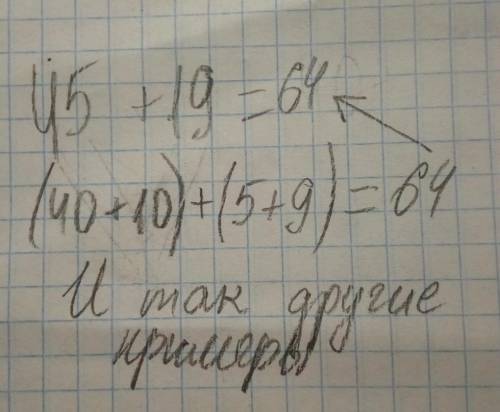 45 + 19 = 64
(40+10)+(5+9)=64
И так другие
примеры